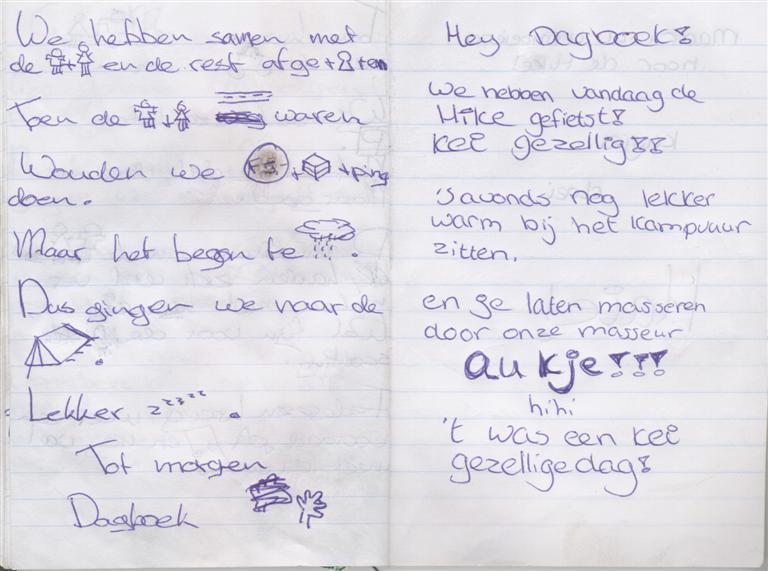 We hebben samen met
de + en de rest afge++ten
Toen de + waren
Wouden we FS+ +ping
doen.
Maar het begon te .
Dus gingen we naar de
.
Lekker zzzzz.
Tot morgen
Dagboek
Hey Dagboek!
We hebben vandaag de
Hike gefietst!
Kei gezellig!!
'savonds nog lekker
warm bij het kampvuur
zitten.
en ge laten masseren
door onze masseur
aukje!!!
hihi
't was een kei
gezellige dag!